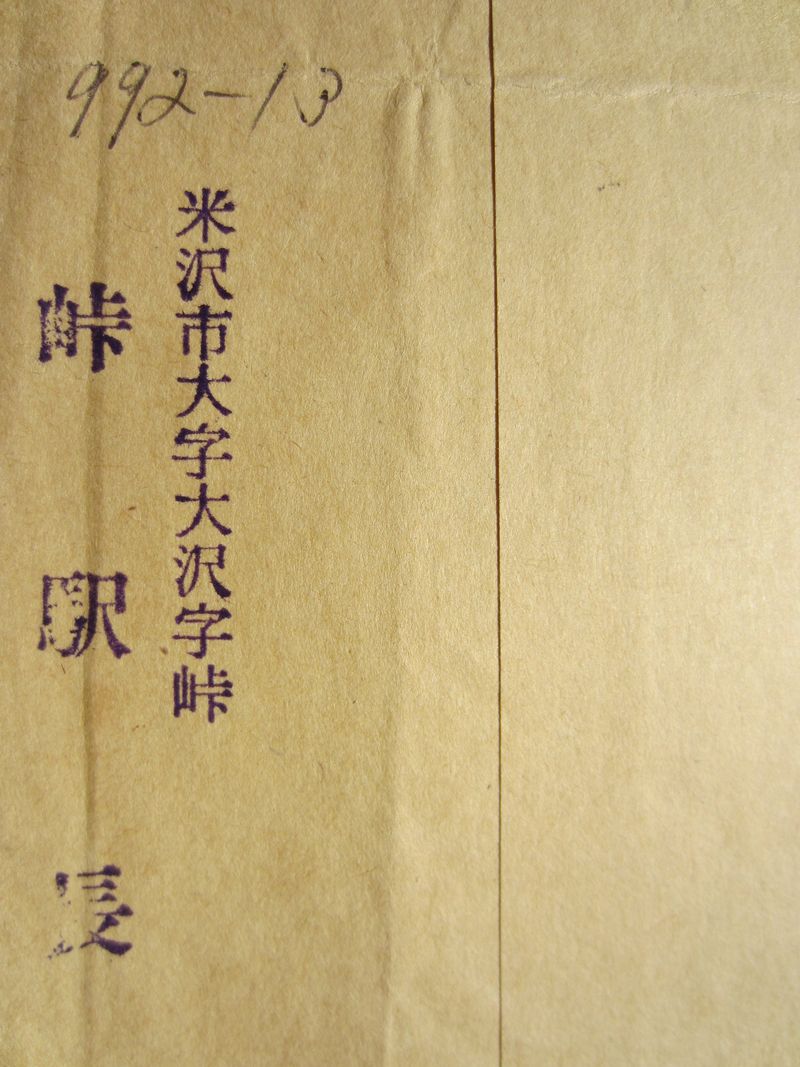 992-13
米沢市大字大沢字峠
峠駅長